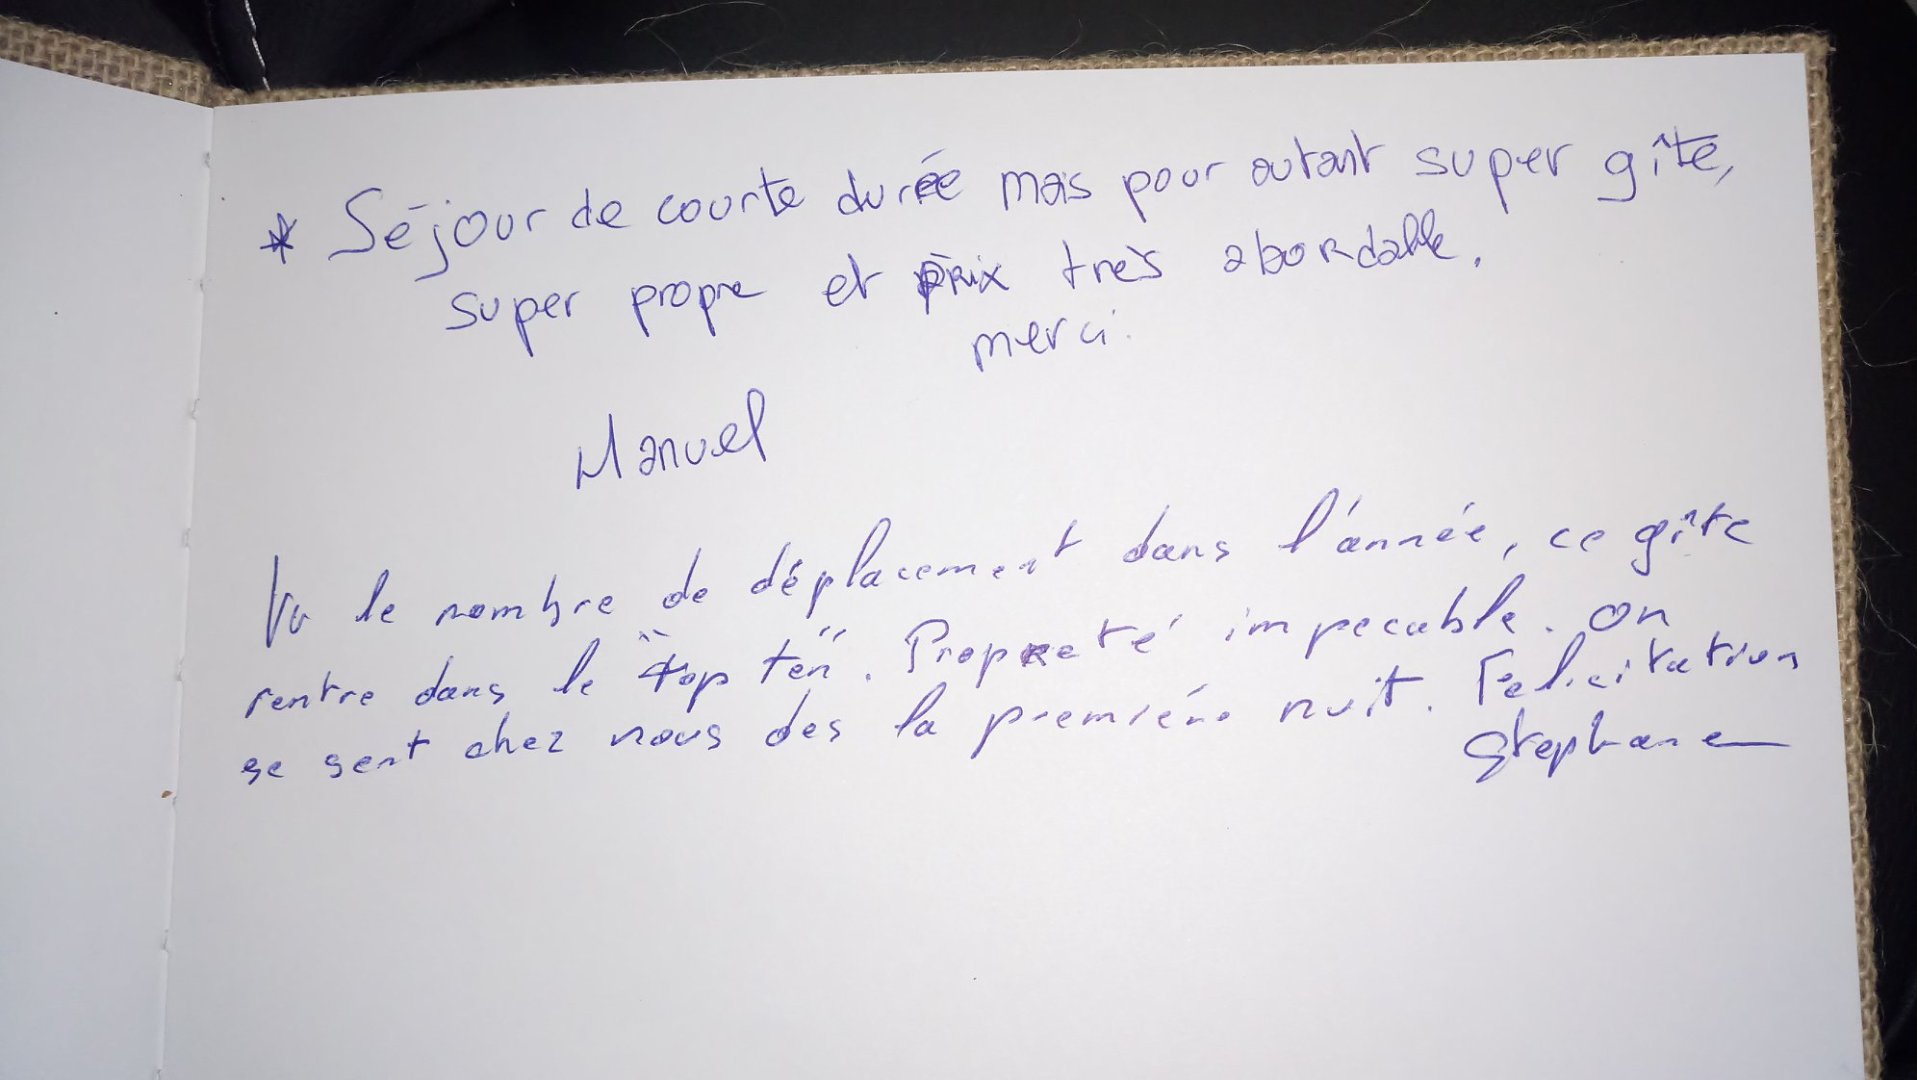 * Séjour de courte durée mais pour autant super gîte,
super propre et prix très abordable.
merci.
Manuel
Vu le nombre de déplacement dans l'année, ce gîte
rentre dans le "top ten". Propreté impecable. On
se sent chez nous des la première nuit. Felicitation
Stephane